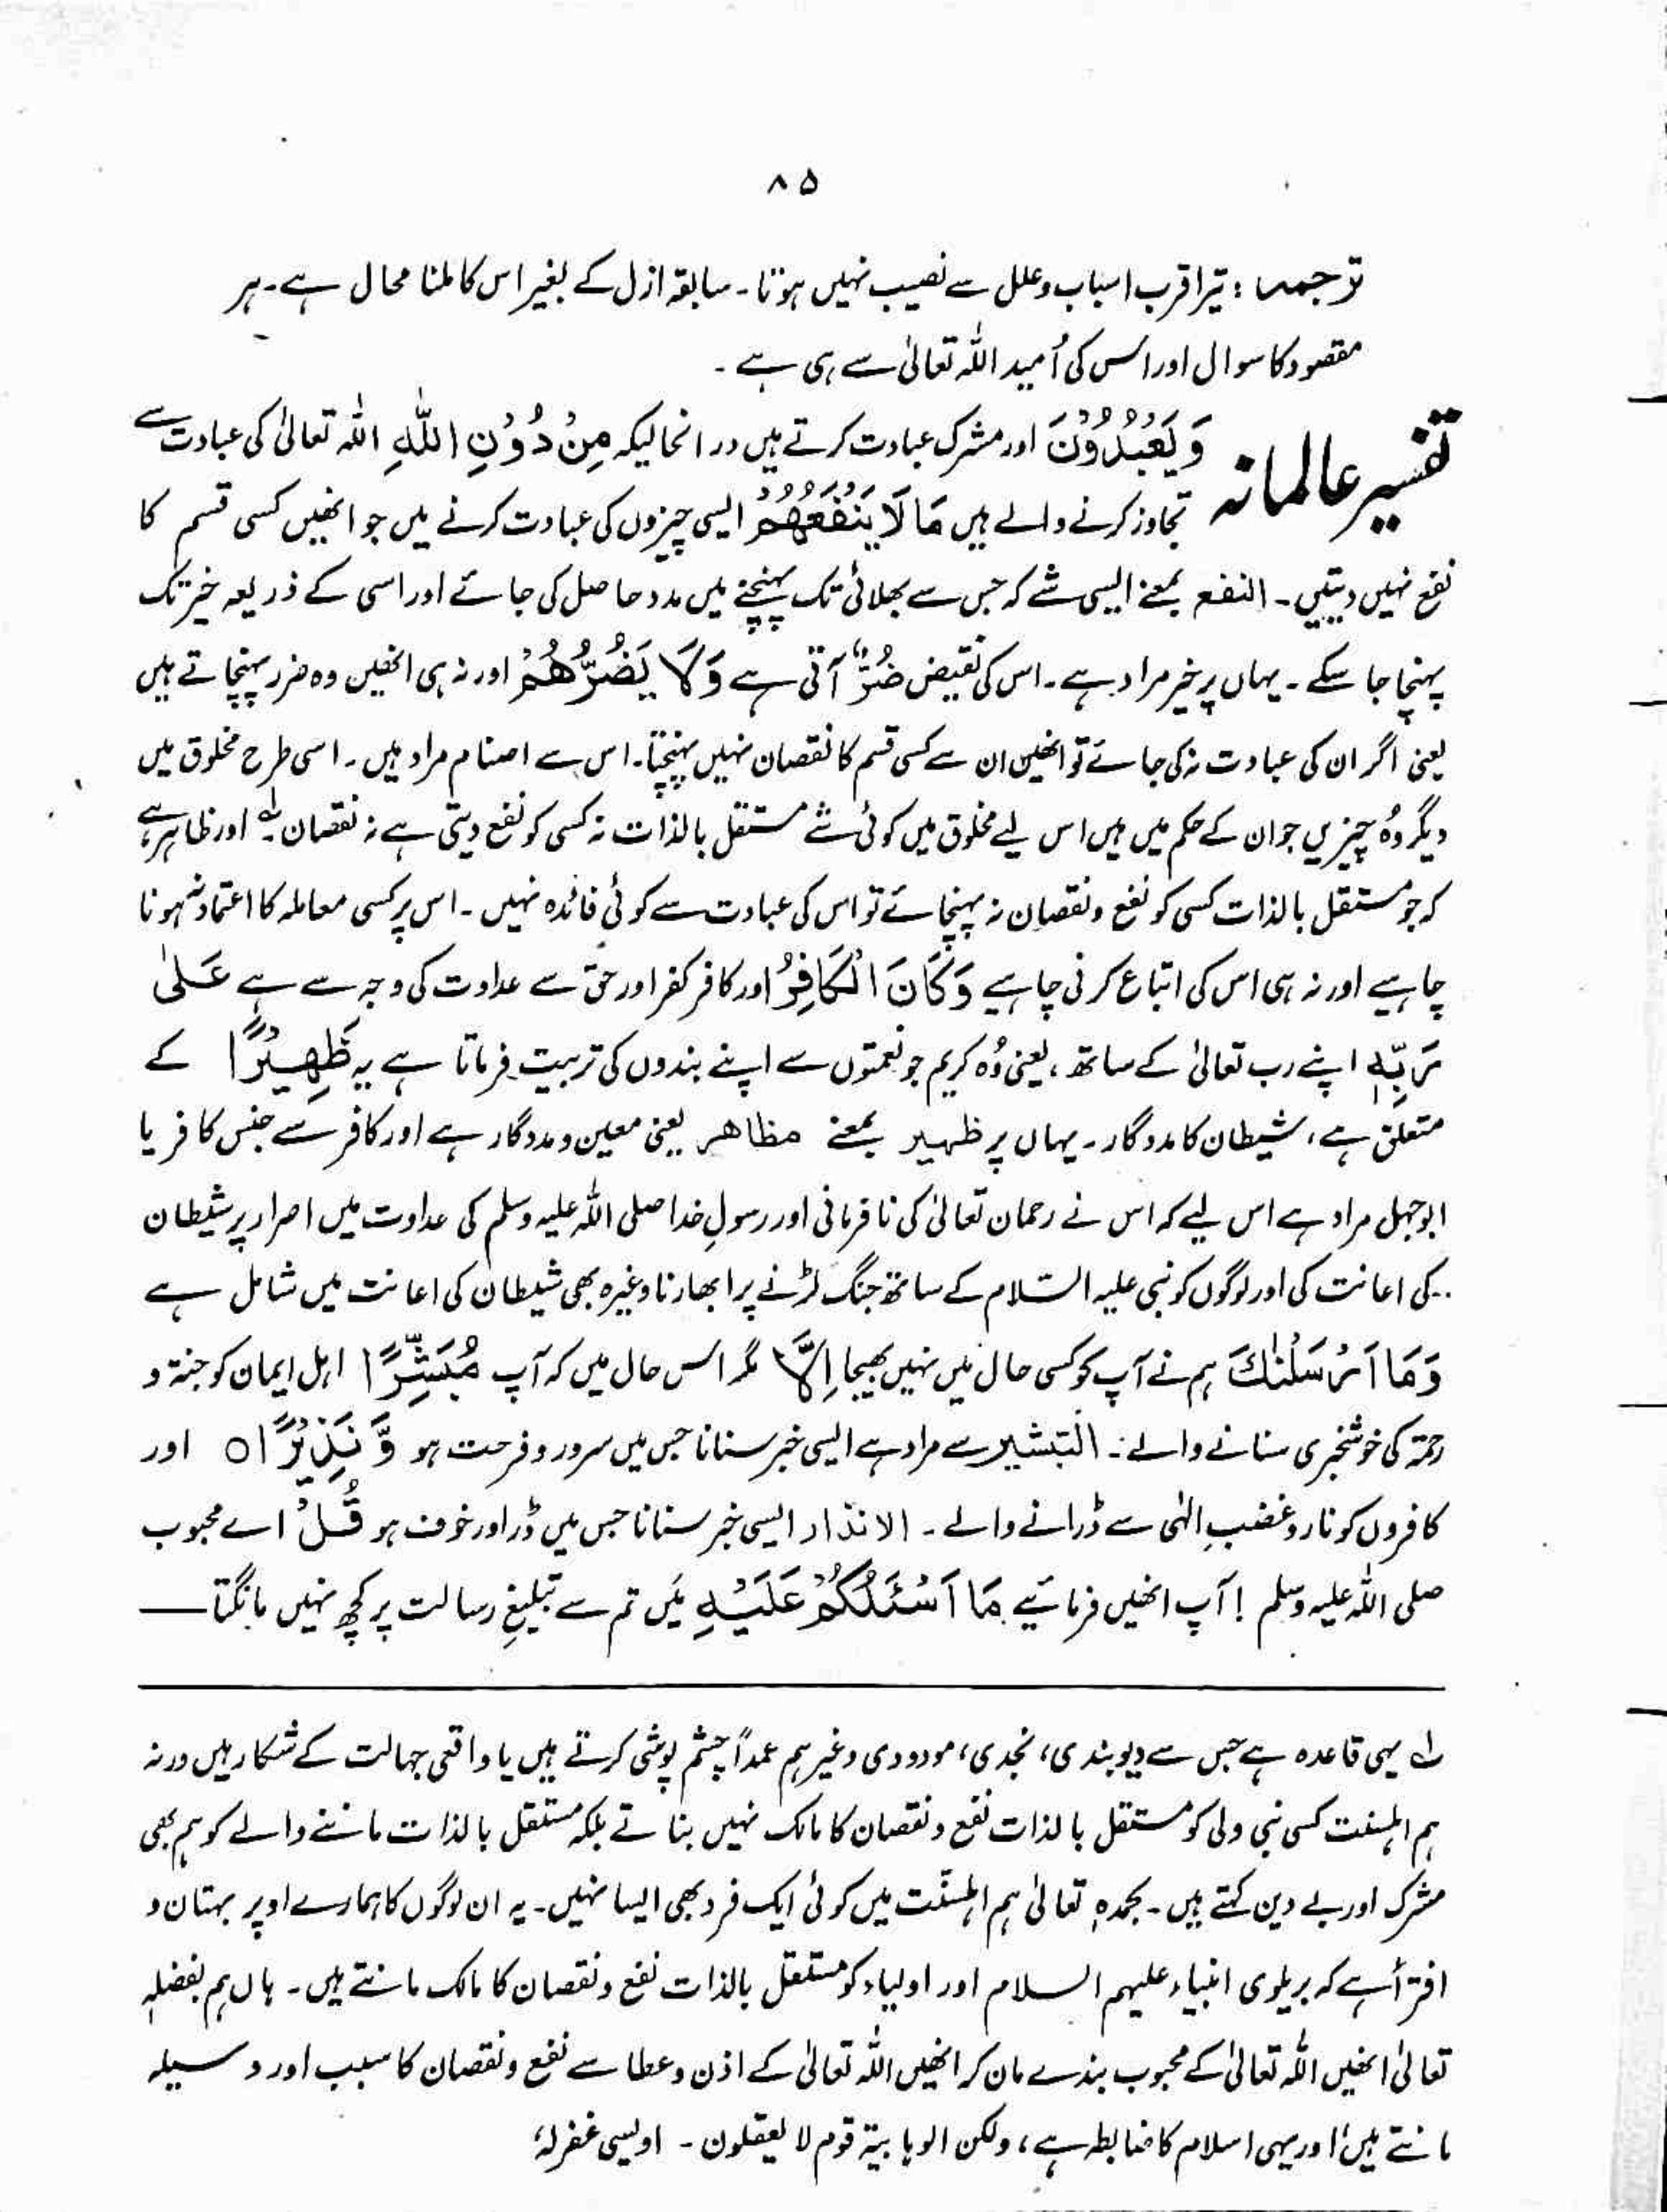 ۸۵
ترجمہ : تیرا قرب اسباب وعلل سے نصیب نہیں ہوتا ۔ سابقہ ازل کے بغیر اس کا ملنا محال ہے ۔ ہر
مقصود کا سوال اور اس کی اُمید اللہ تعالیٰ سے ہی ہے ۔
تفسیر عالمانہ وَيَعْبُدُوْنَ اور مشرک عبادت کرتے ہیں درانحالیکہ مِنْ دُوْنِ اللّٰهِ اللہ تعالیٰ کی عبادت سے
تجاوز کرنے والے ہیں مَا لَا يَنْفَعُهُمْ ایسی چیزوں کی عبادت کرنے میں جو انھیں کسی قسم کا
نفع نہیں دیتیں ۔ النفع بمعنے ایسی شے کہ جس سے بھلائی تک پہنچنے میں مدد حاصل کی جائے اور اسی کے ذریعہ خیر تک
پہنچا جا سکے ۔ یہاں پر خیر مراد ہے ۔ اس کی نقیض ضُرٌّ آتی ہے وَلَا يَضُرُّهُمْ اور نہ ہی انھیں وہ ضرر پہنچاتے ہیں
یعنی اگر ان کی عبادت نہ کی جائے تو انھیں ان سے کسی قسم کا نقصان نہیں پہنچتا ۔ اس سے اصنام مراد ہیں ۔ اسی طرح مخلوق میں
دیگر وُہ چیزیں جو ان کے حکم میں ہیں اس لیے مخلوق میں کوئی شے مستقل بالذات نہ کسی کو نفع دیتی ہے نہ نقصان ۔ لہ اور ظاہر ہے
کہ جو مستقل بالذات کسی کو نفع و نقصان نہ پہنچائے تو اس کی عبادت سے کوئی فائدہ نہیں ۔ اس پر کسی معاملہ کا اعتماد نہ ہونا
چاہیے اور نہ ہی اس کی اتباع کرنی چاہیے وَكَانَ الْكَافِرُ اور کافر کفر اور حق سے عداوت کی وجہ سے ہے عَلٰى
رَبِّهٖ اپنے رب تعالیٰ کے ساتھ ، یعنی وُہ کریم جو نعمتوں سے اپنے بندوں کی تربیت فرماتا ہے یہ ظَهِيْرًا کے
متعلق ہے ، شیطان کا مددگار ۔ یہاں پر ظہیر بمعنے مظاھر یعنی معین و مددگار ہے اور کافر سے جنس کافر یا
ابوجہل مراد ہے اس لیے کہ اس نے رحمان تعالیٰ کی نافرمانی اور رسولِ خدا صلی اللہ علیہ وسلم کی عداوت میں اصرار پر شیطان
کی اعانت کی اور لوگوں کو نبی علیہ السّلام کے ساتھ جنگ لڑنے پر ابھارنا وغیرہ بھی شیطان کی اعانت میں شامل ہے
وَمَا اَرْسَلْنٰكَ ہم نے آپ کو کسی حال میں نہیں بھیجا اِلَّا مگر اس حال میں کہ آپ مُبَشِّرًا اہل ایمان کو جنۃ و
رحمۃ کی خوشخبری سنانے والے ۔ التبشیر سے مراد ہے ایسی خبر سنانا جس میں سرور و فرحت ہو وَّنَذِيْرًا ○ اور
کافروں کو نار و غضبِ الٰہی سے ڈرانے والے ۔ الانذار ایسی خبر سنانا جس میں ڈر اور خوف ہو قُلْ اے محبوب
صلی اللہ علیہ وسلم ! آپ انھیں فرمائیے مَا اَسْئَلُكُمْ عَلَيْهِ میَں تم سے تبلیغِ رسالت پر کچھ نہیں مانگتا ——
لہ یہی قاعدہ ہے جس سے دیوبندی ، نجدی ، مودودی وغیرہم عمداً چشم پوشی کرتے ہیں یا واقعی جہالت کے شکار ہیں ورنہ
ہم اہلسنت کسی نبی ولی کو مستقل بالذات نفع و نقصان کا مالک نہیں بناتے بلکہ مستقل بالذات ماننے والے کو ہم بھی
مشرک اور بے دین کہتے ہیں ۔ بحمدہٖ تعالیٰ ہم اہلسنّت میں کوئی ایک فرد بھی ایسا نہیں ۔ یہ ان لوگوں کا ہمارے اوپر بہتان و
افترأ ہے کہ بریلوی انبیاء علیہم السلام اور اولیاء کو مستقل بالذات نفع و نقصان کا مالک مانتے ہیں ۔ ہاں ہم بفضلہٖ
تعالیٰ انھیں اللہ تعالیٰ کے محبوب بندے مان کر انھیں اللہ تعالیٰ کے اذن و عطا سے نفع و نقصان کا سبب اور وسیلہ
مانتے ہیں اور یہی اسلام کا ضابطہ ہے ، ولکن الوہابیۃ قوم لا یعقلون ۔ اویسی غفرلہٗ